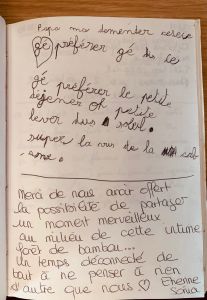 Papa ma demender
gé préférer gé du ce
gé préférer le petit
déjener et petite
lever du soleil.
super la vue de la
Merci de nous avoir offert
la possibilité de partager
un moment merveilleux
au milieu de cette ultime
forêt de bambou...
Un temps déconnecté de
tout à ne penser à rien
d'autre que nous ♡ Etienne
Sonia